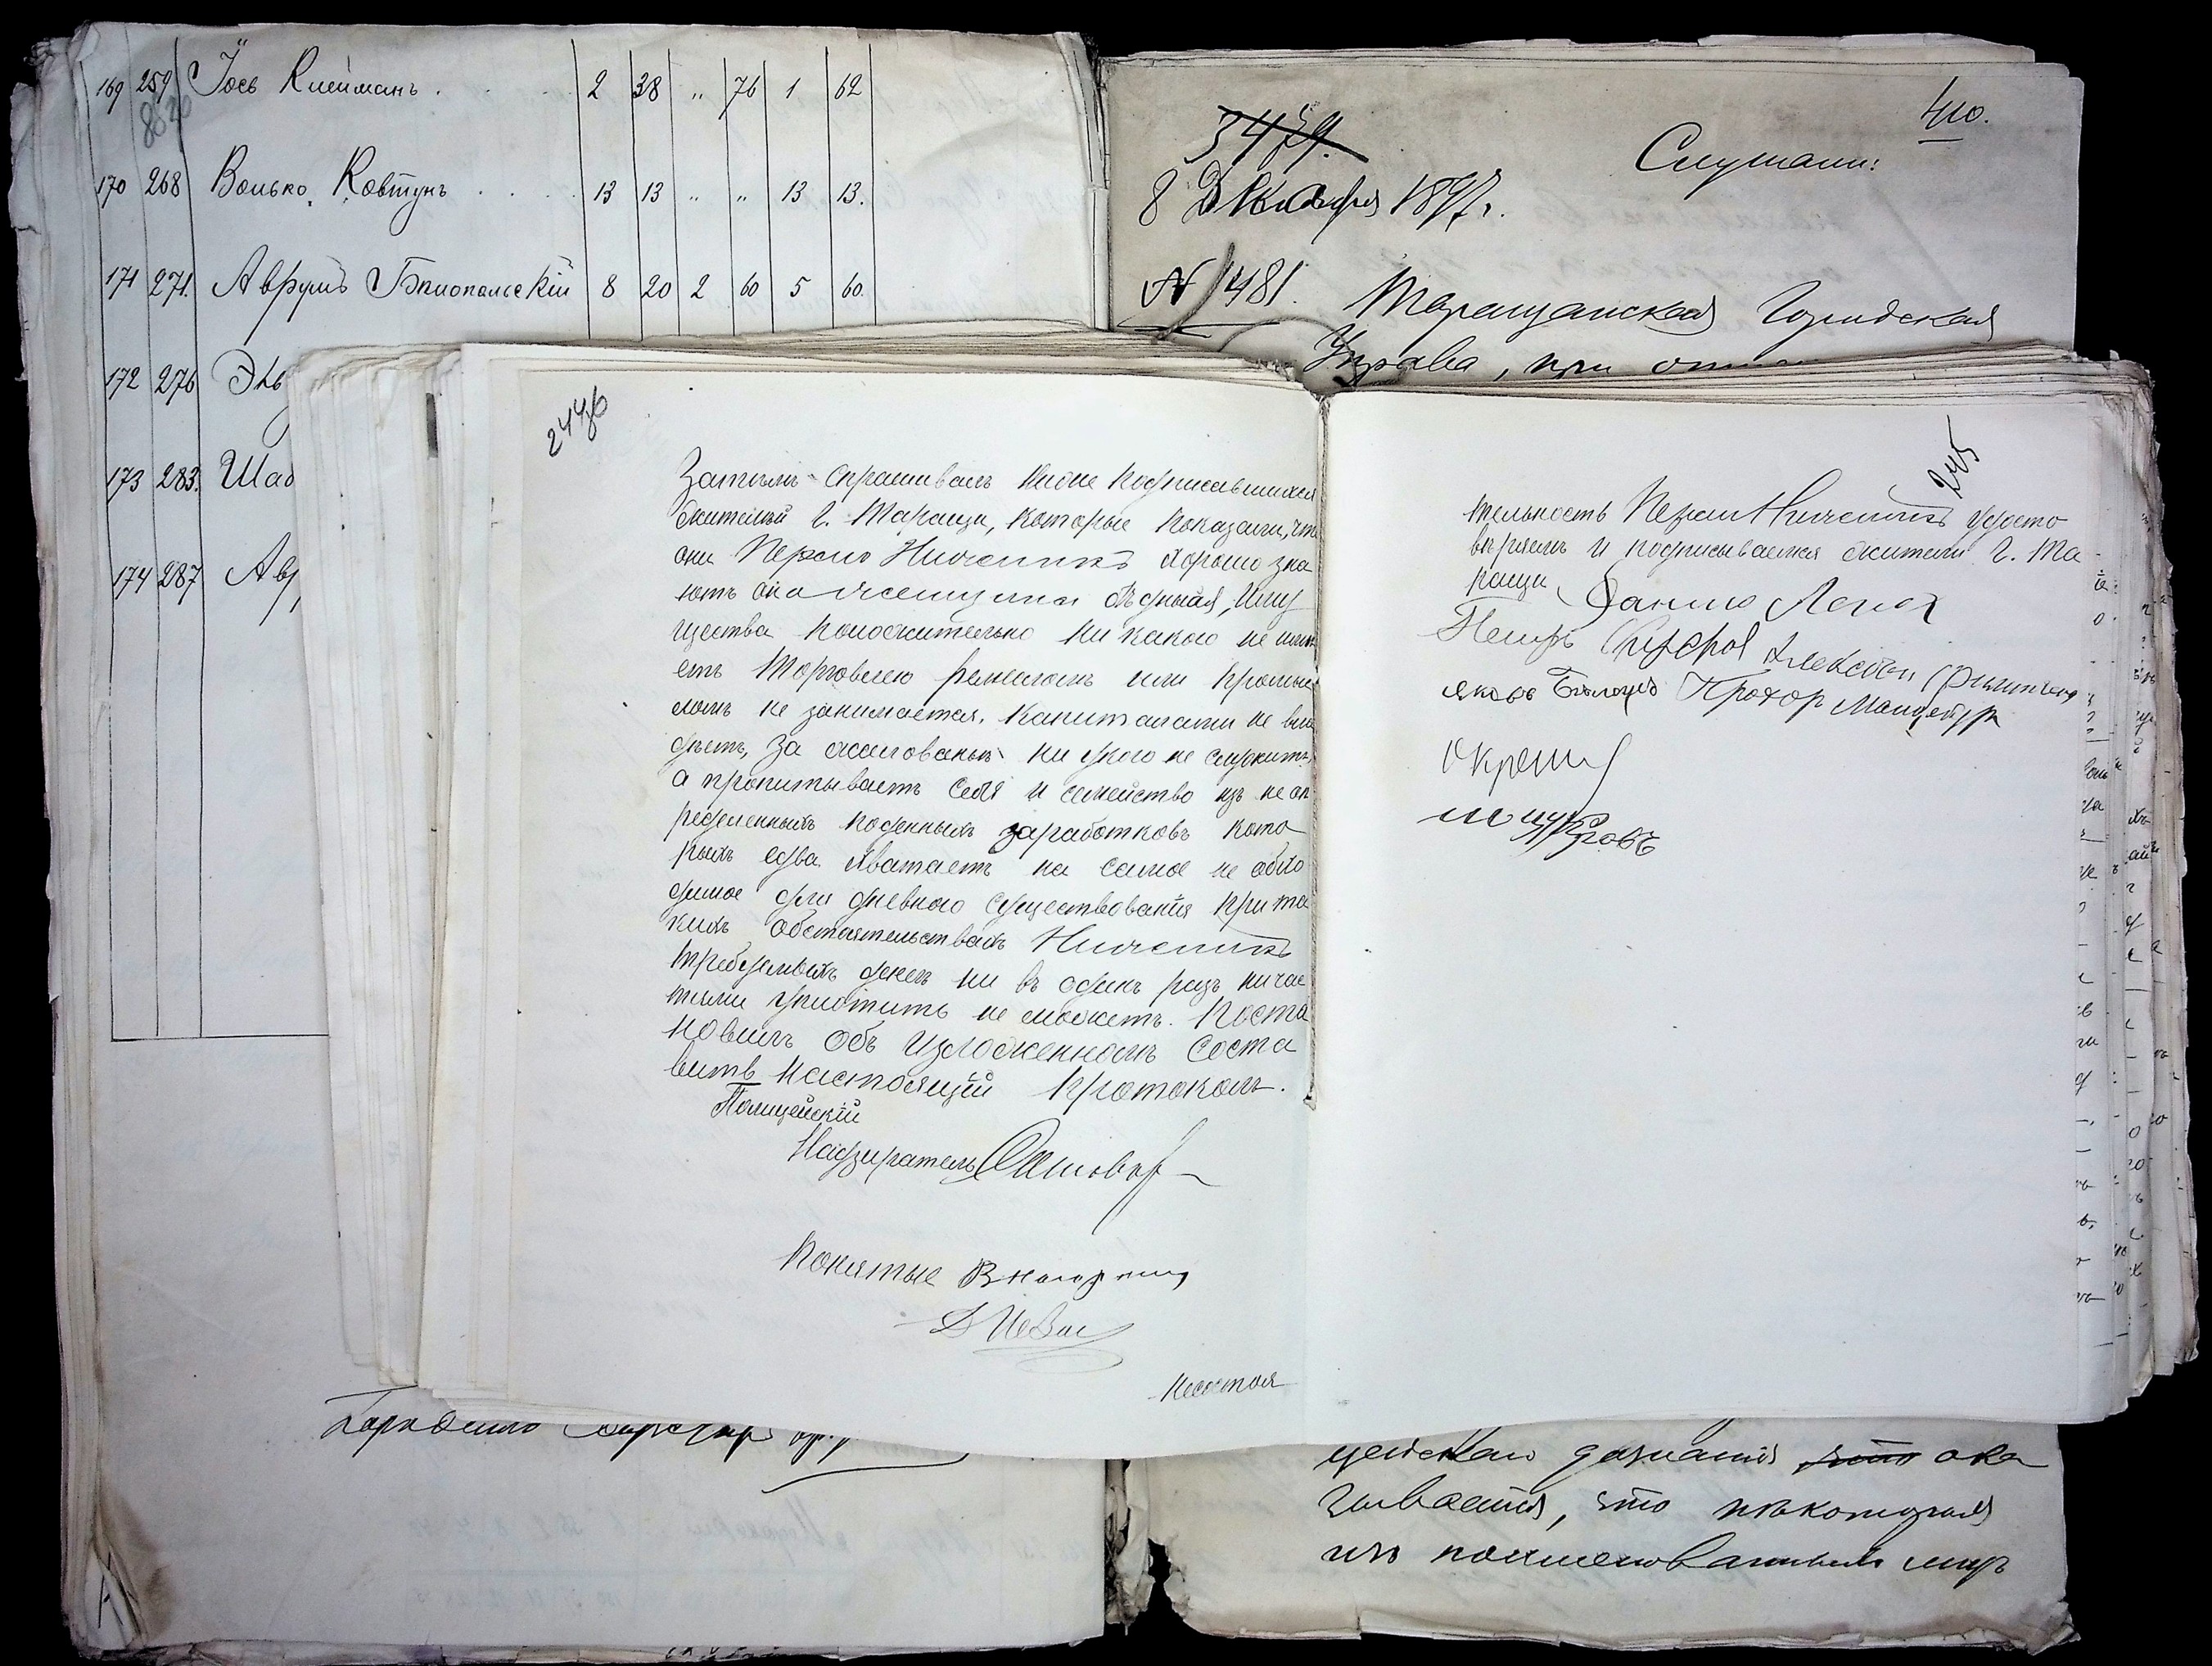 169 259 Іось Клейманъ 2 38 „ 76 1 62
8620
170 268 Волько Ковтунъ 13 13 „ „ 13 13.
171 271. Аврумъ Бялопольскій 8 20 2 60 5 60.
172 276
173 283.
174 287
410.
3479.
Слушали:
8 Декабря 1897 г.
№ 1481.
Таращанская Городская
Управа, при
244б
Затѣмъ спрашивалъ ниже подписавшихся
жителей г. Таращи, которые показали, что
они Перлю Ниченикъ хорошо зна
ютъ она женщина бѣдная, иму
щества положительно ни какого не имѣ
етъ торговлею ремесломъ или промыс
ломъ не занимается, капиталами не вла
дѣетъ, за жалованьемъ ни укого не служитъ,
а пропитываетъ себя и семейство изъ не оп
ределенныхъ поденныхъ заработковъ кото
рыхъ едва хватаетъ на самое не обхо
димое для дневного существованія при та
кихъ обстоятельствахъ Ниченикъ
требуемыхъ денегъ ни въ одинъ разъ ни час
тями уплотить не можетъ. Поста
новилъ объ изложенномъ соста
вить настоящій протоколъ.
Полицейскій
Надзиратель
Понятые
Несостоя
245
тельность Перли Ниченикъ удосто
вѣряемъ и подписываемся жители г. Та-
ращи Данило
Петръ Алексѣй
Яковъ Прохор
цейскаго дознанія ока
зывается, что нѣкоторыя
изъ поименованныхъ лицъ